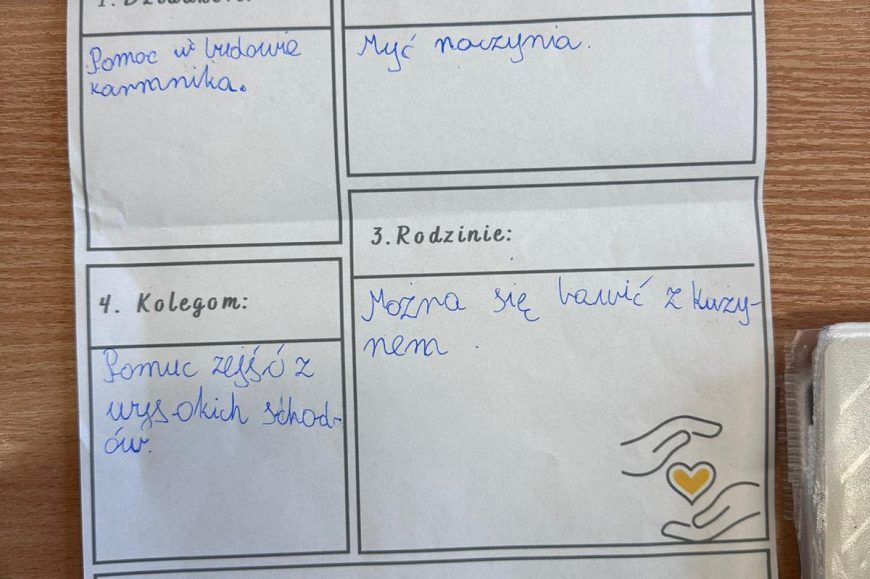 Pomoc w budowie
karmnika.
Myć naczynia.
3. Rodzinie:
Można się bawić z kuzy-
nem.
4. Kolegom:
Pomuc zejść z
wysokich schod-
ów.